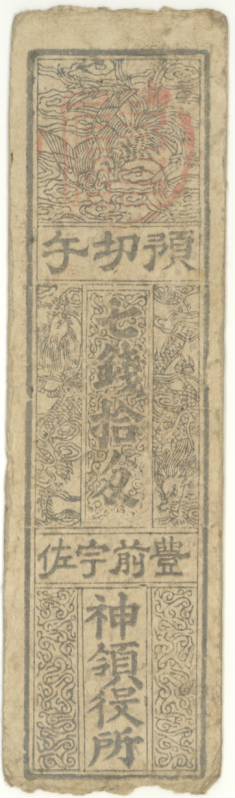 預切手
七錢拾匁
豊前宇佐
神領役所